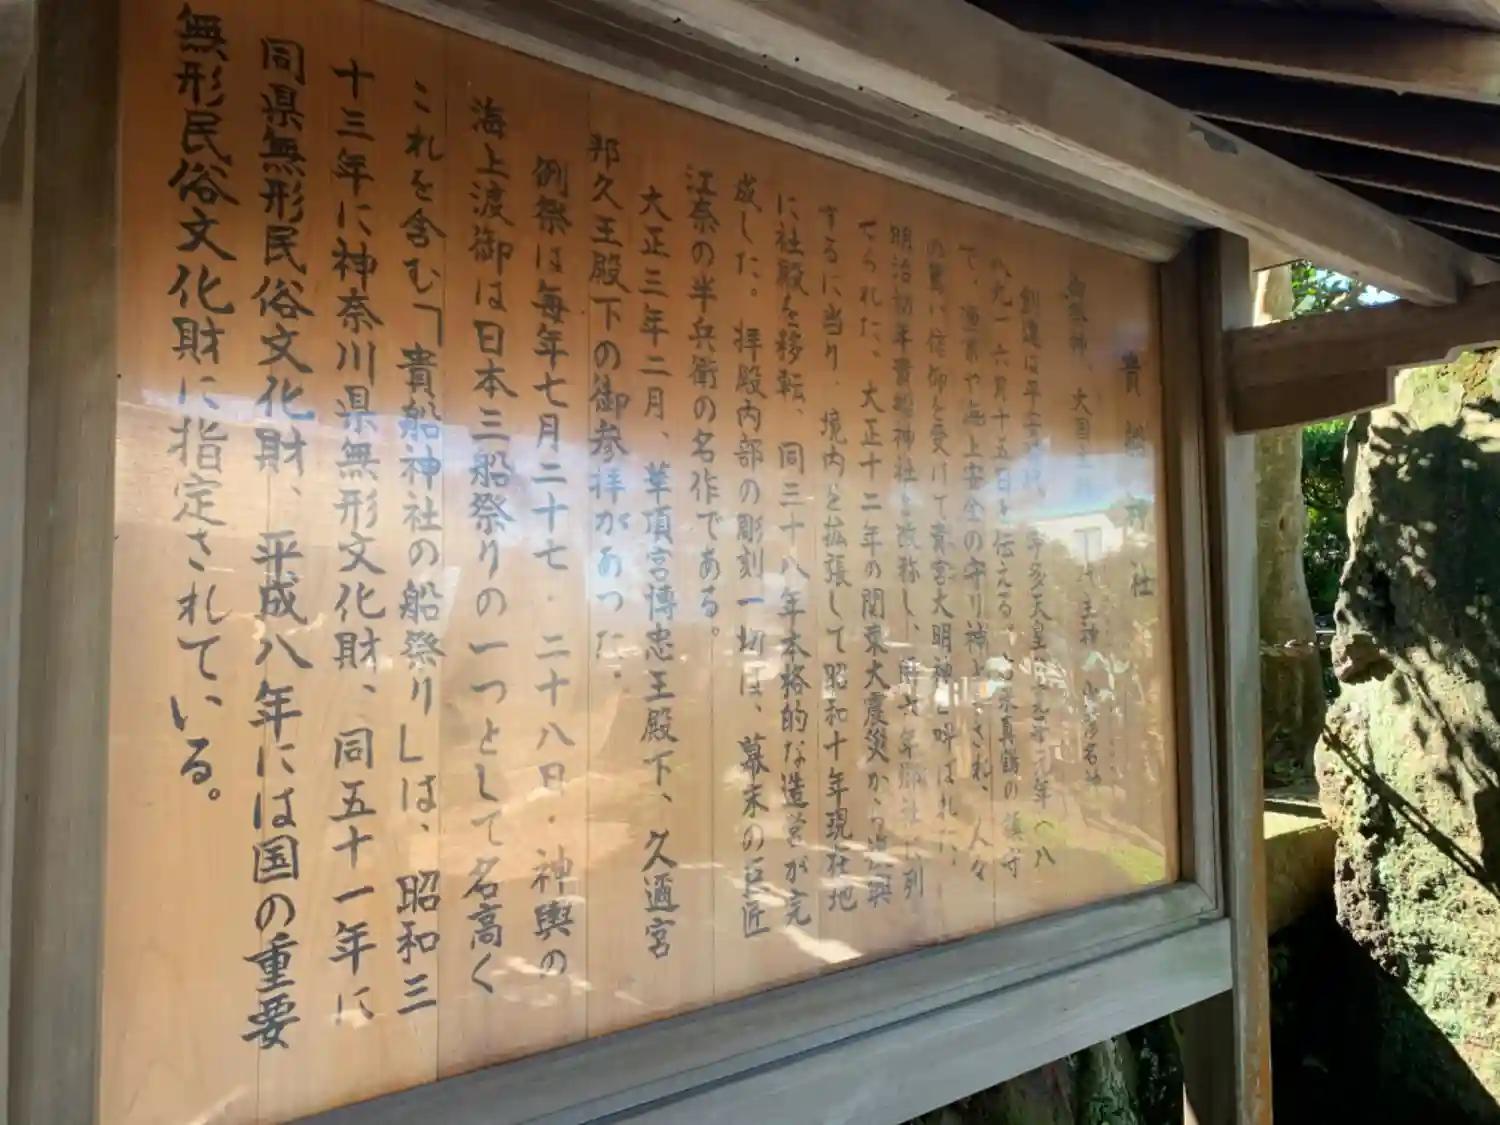 貴船神社
御祭神、大国主
創建は平安時代、宇多天皇
六月十五日と伝える。
て、漁業や海上安全の守り神と、人々
の篤い信仰を受けて貴宮大明神と呼ばれ、
明治初年貴船神社と改称し、同六年郷社に列
せられた、大正十二年の関東大震災から復興
するに当り、境内を拡張して昭和十年現在地
に社殿を移転、同三十八年本格的な造営が完
成した。拝殿内部の彫刻一切は、幕末の巨匠
江奈の半兵衛の名作である。
大正三年二月、華頂宮博忠王殿下、久邇宮
邦久王殿下の御参拝があった。
例祭は毎年七月二十七・二十八日・神輿の
海上渡御は日本三船祭りの一つとして名高く
これを含む「貴船神社の船祭り」は、昭和三
十三年に神奈川県無形文化財、同五十一年に
同県無形民俗文化財、平成八年には国の重要
無形民俗文化財に指定されている。